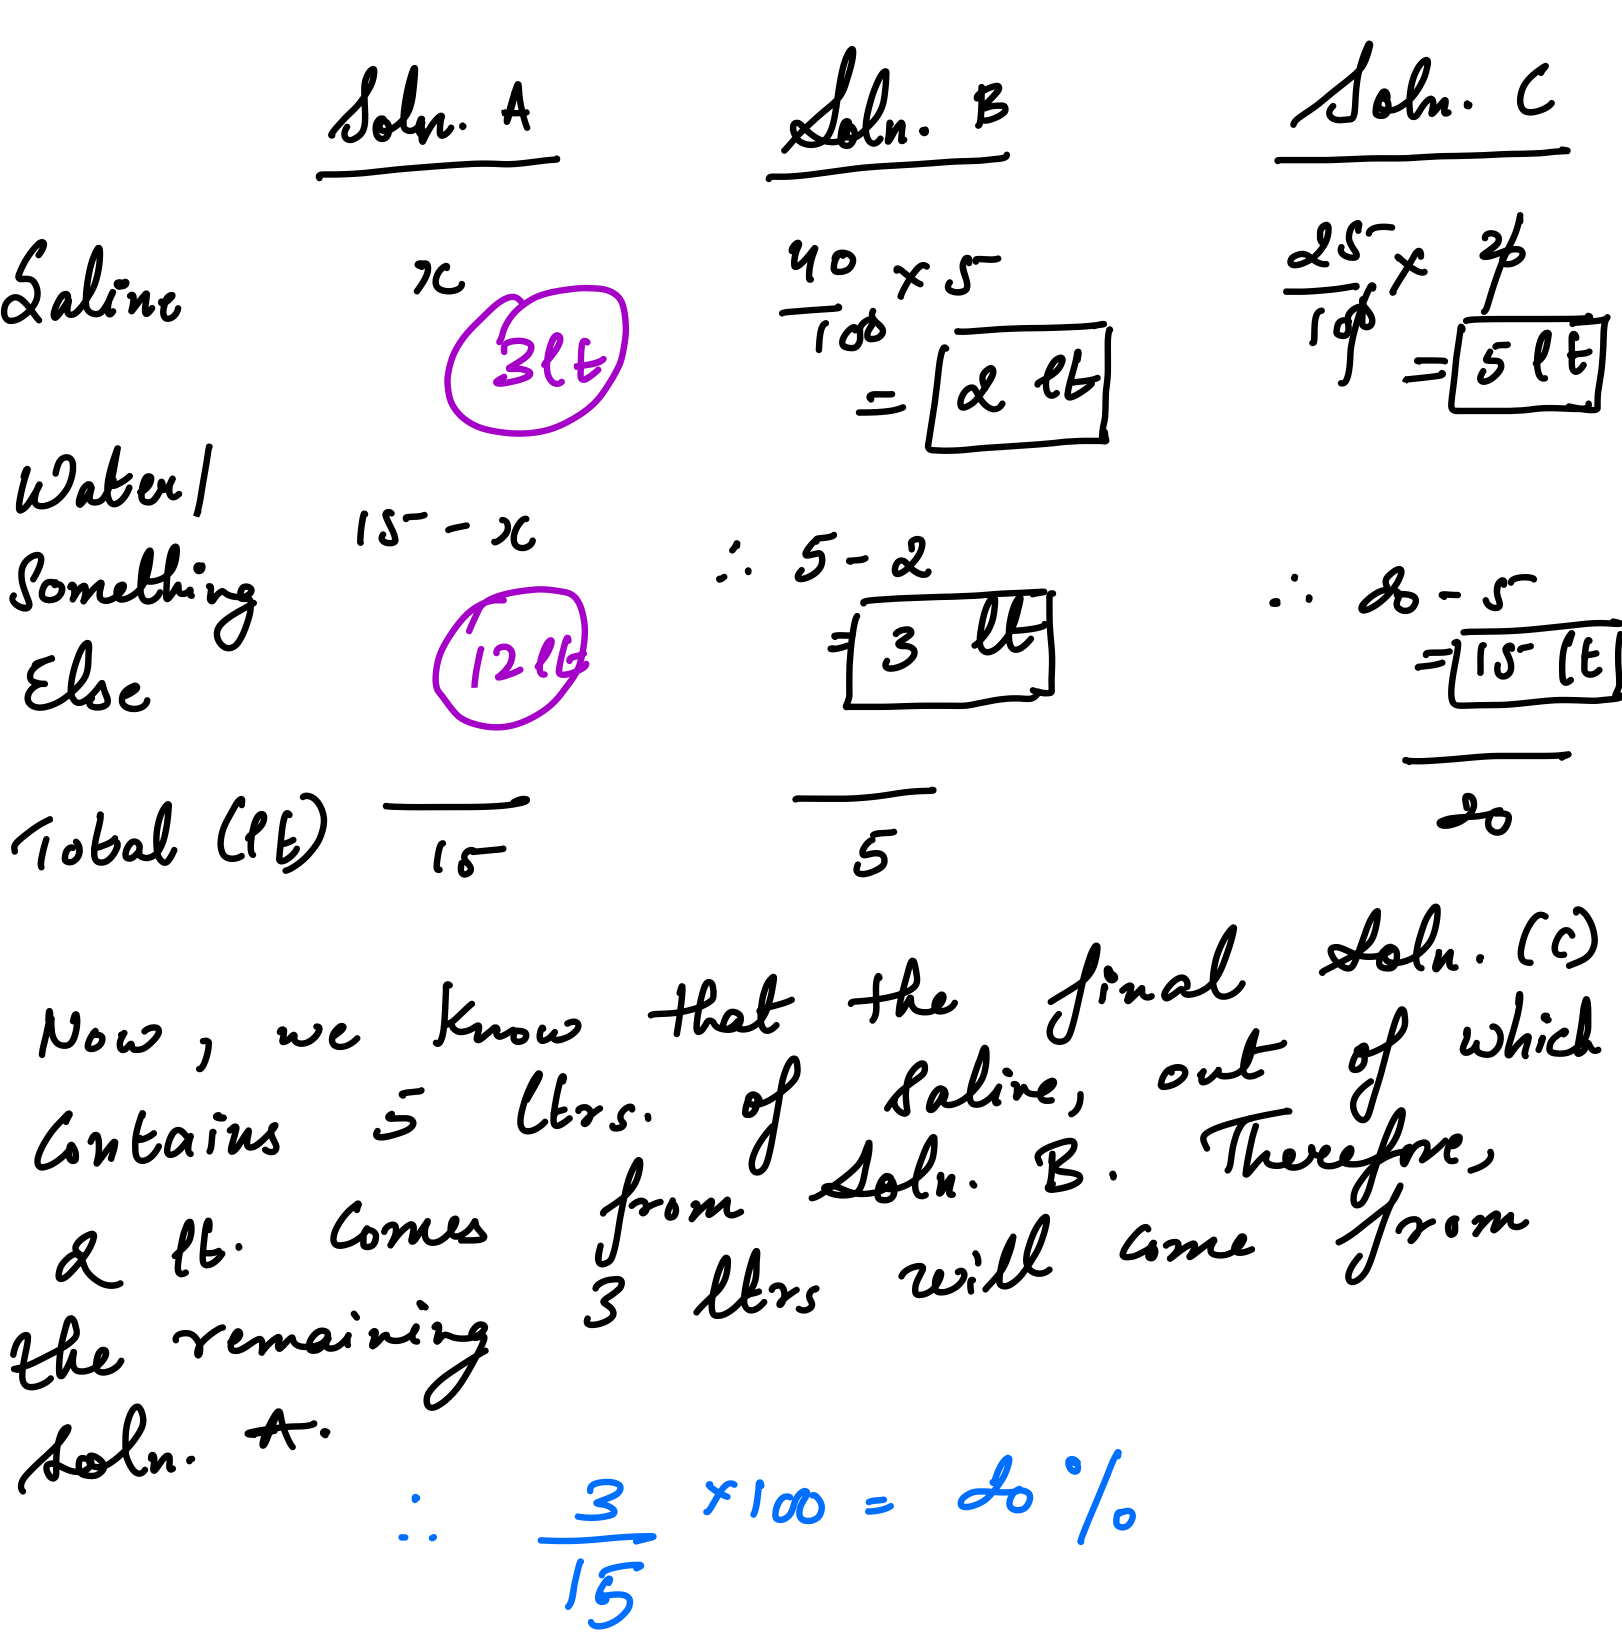 Soln. A Soln. B Soln. C
Saline x 40/100 × 5 25/100 × 20
3lt = 2 lt = 5 lt
Water/
Something
Else
15 - x ∴ 5 - 2 ∴ 20 - 5
12lt = 3 lt = 15 lt
Total (lt) 15 5 20
Now, we know that the final Soln. (C)
Contains 5 ltrs. of Saline, out of which
2 lt. comes from Soln. B. Therefore,
the remaining 3 ltrs will come from
Soln. A.
∴ 3/15 ×100 = 20%